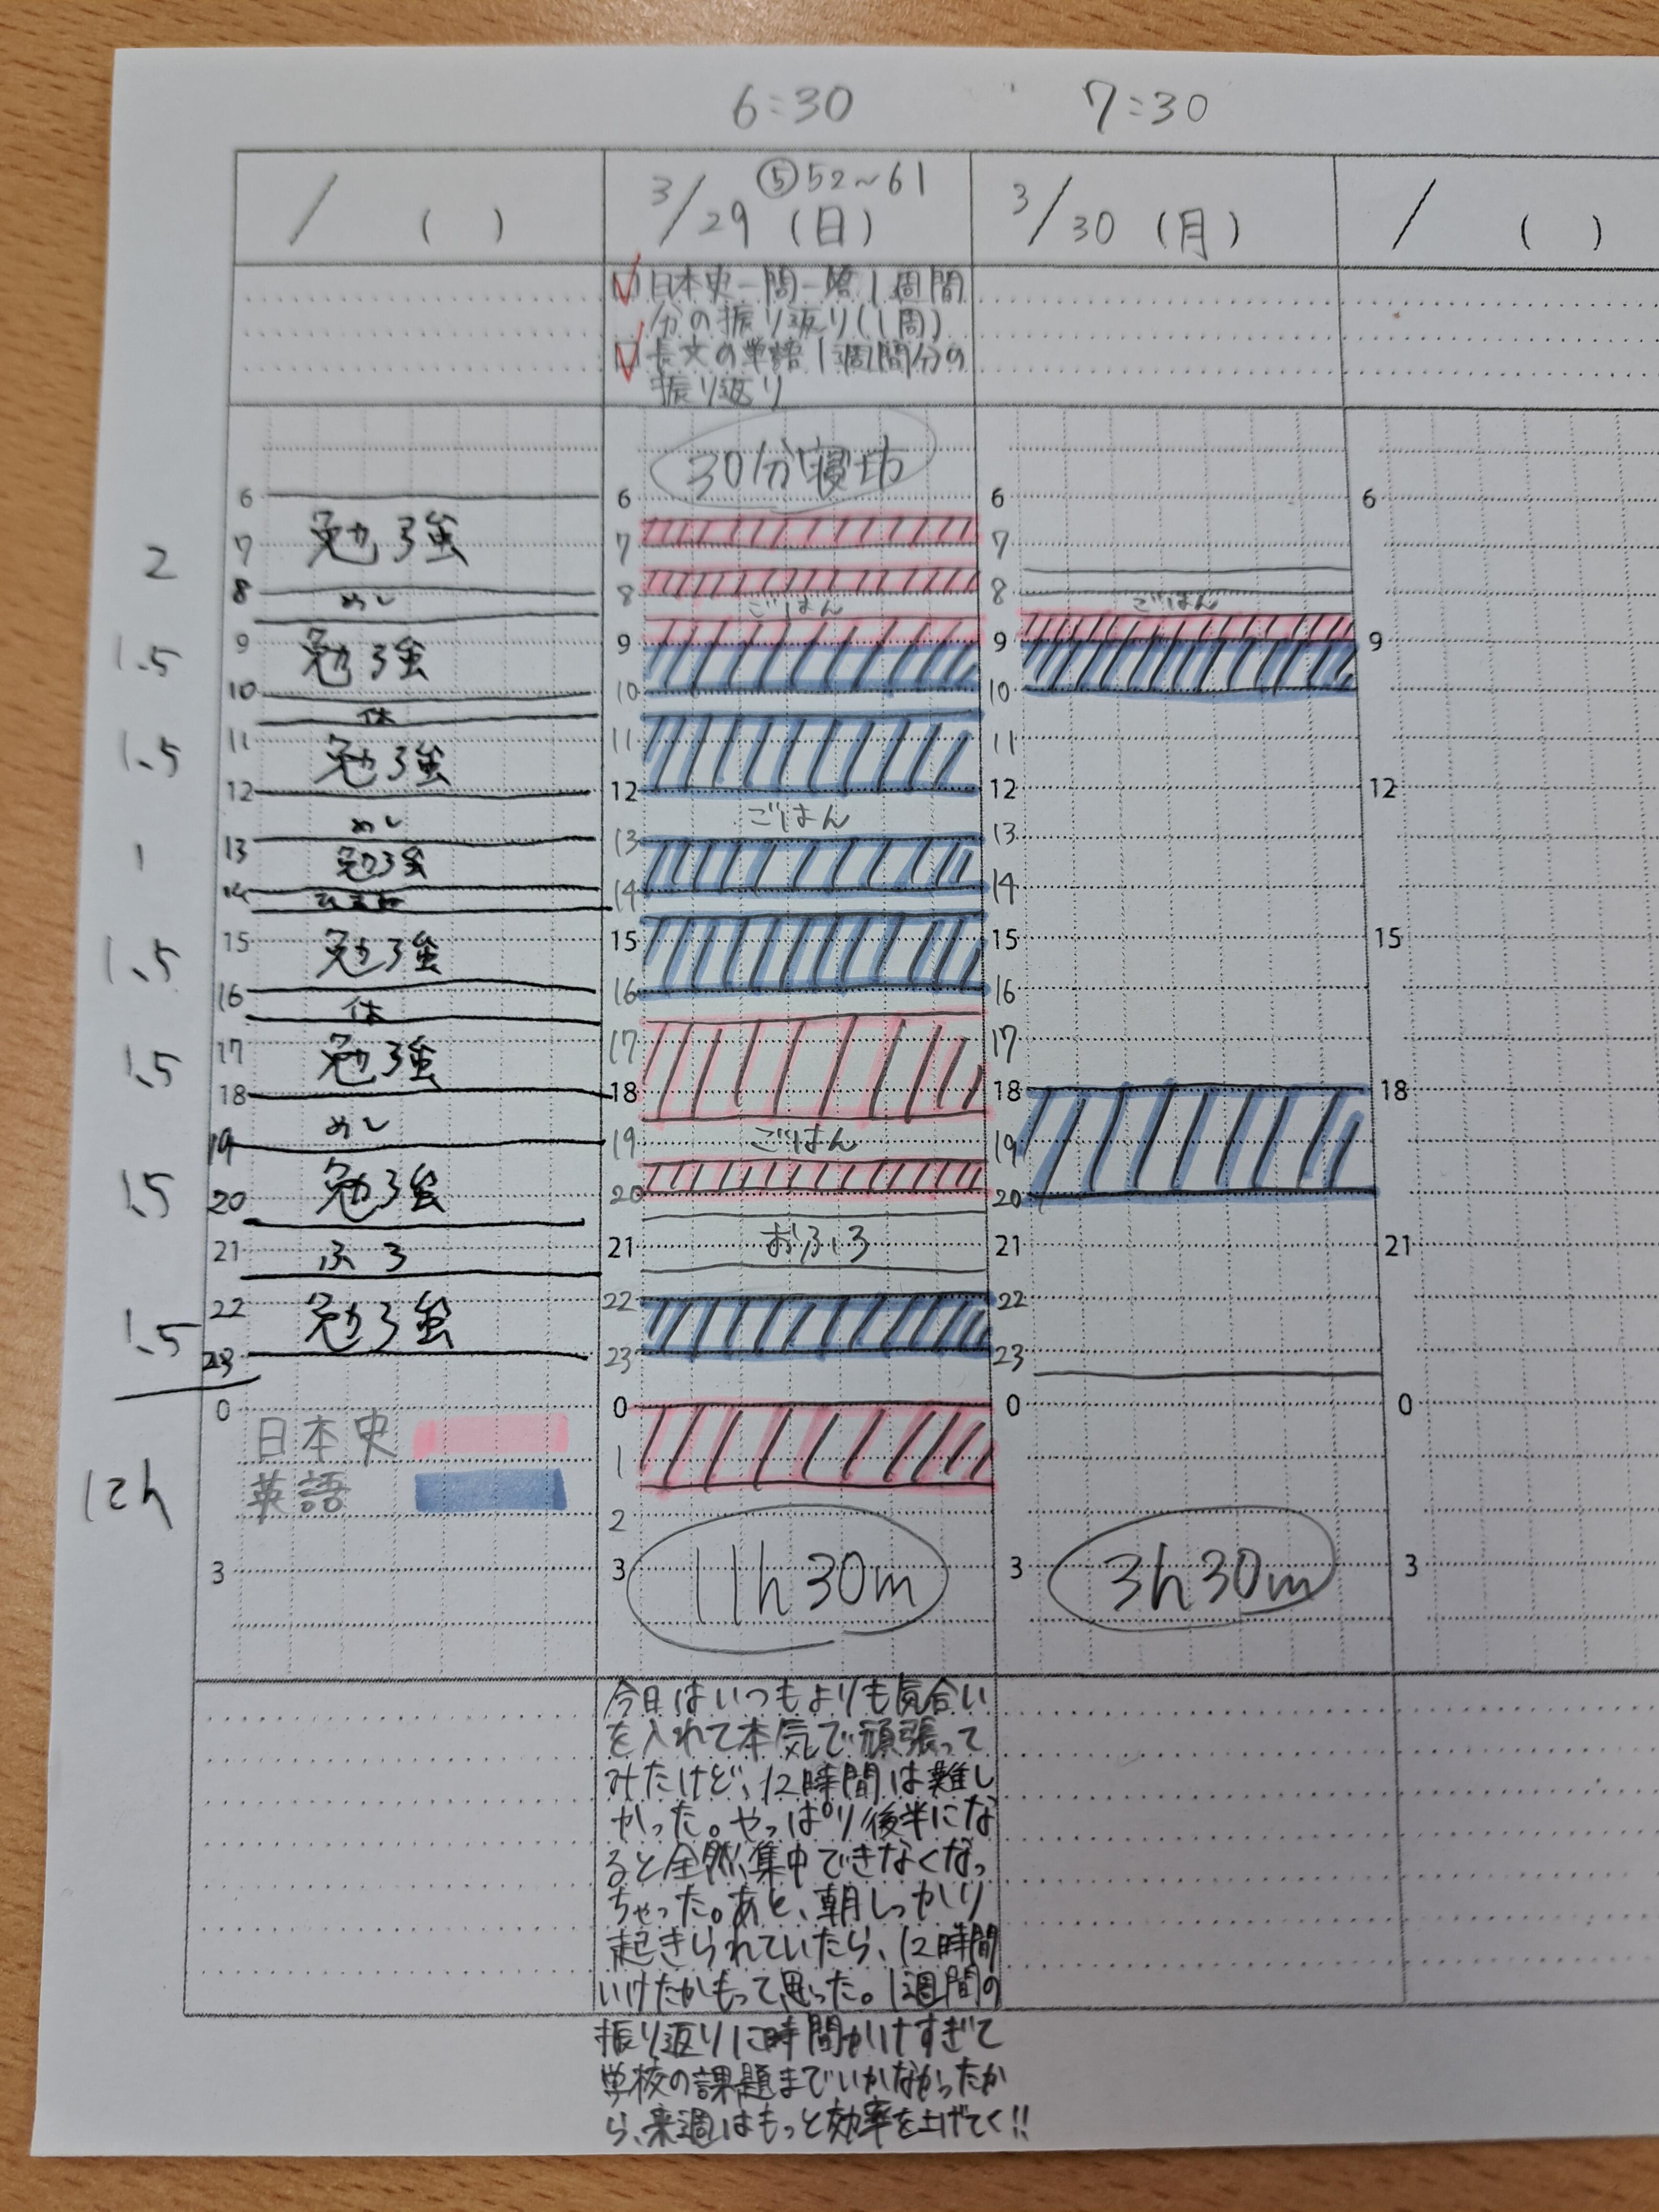 6:30
7:30
/ ( )
⑤52~61
3/29 (日)
3/30 (月)
/ ( )
日本史一問一答1週間
分の振り返り(1周)
長文の単語1週間分の
振り返り
30分寝坊
6
勉強
7
2
8
めし
1.5
9
勉強
10
休
1.5
11
勉強
12
めし
1
13
勉強
14
1.5
15
勉強
16
休
1.5
17
勉強
18
めし
19
1.5
勉強
20
21
ふろ
1.5
22
勉強
23
12h
0
日本史
英語
3
6
7
8
ごはん
9
10
11
12
ごはん
13
14
15
16
17
18
19
ごはん
20
21
おふろ
22
23
0
1
2
3
11h30m
6
7
8
ごはん
9
10
11
12
13
14
15
16
17
18
19
20
21
22
23
0
3
3h30m
6
9
12
15
18
21
0
3
今日はいつもよりも気合い
を入れて本気で頑張って
みたけど、12時間は難し
かった。やっぱり後半にな
ると全然集中できなくなっ
ちゃった。あと、朝しっかり
起きられていたら、12時間
いけたかもって思った。1週間の
振り返りに時間かけすぎて
学校の課題までいかなかったか
ら、来週はもっと効率を上げてく!!